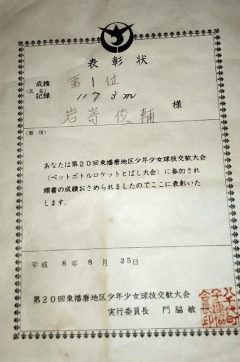 表彰状
成績 第1位
(氏名)
記録 1173m
岩嵜俊輔 様
(事項)
あなたは第20回東播磨地区少年少女球技交歓大会
(ペットボトルロケットとばし大会)に参加され
頭書の成績おさめられましたのでここに表彰いた
します。
平成 8年 8月 25日
第20回東播磨地区少年少女球技交歓大会
実行委員長 門脇敏